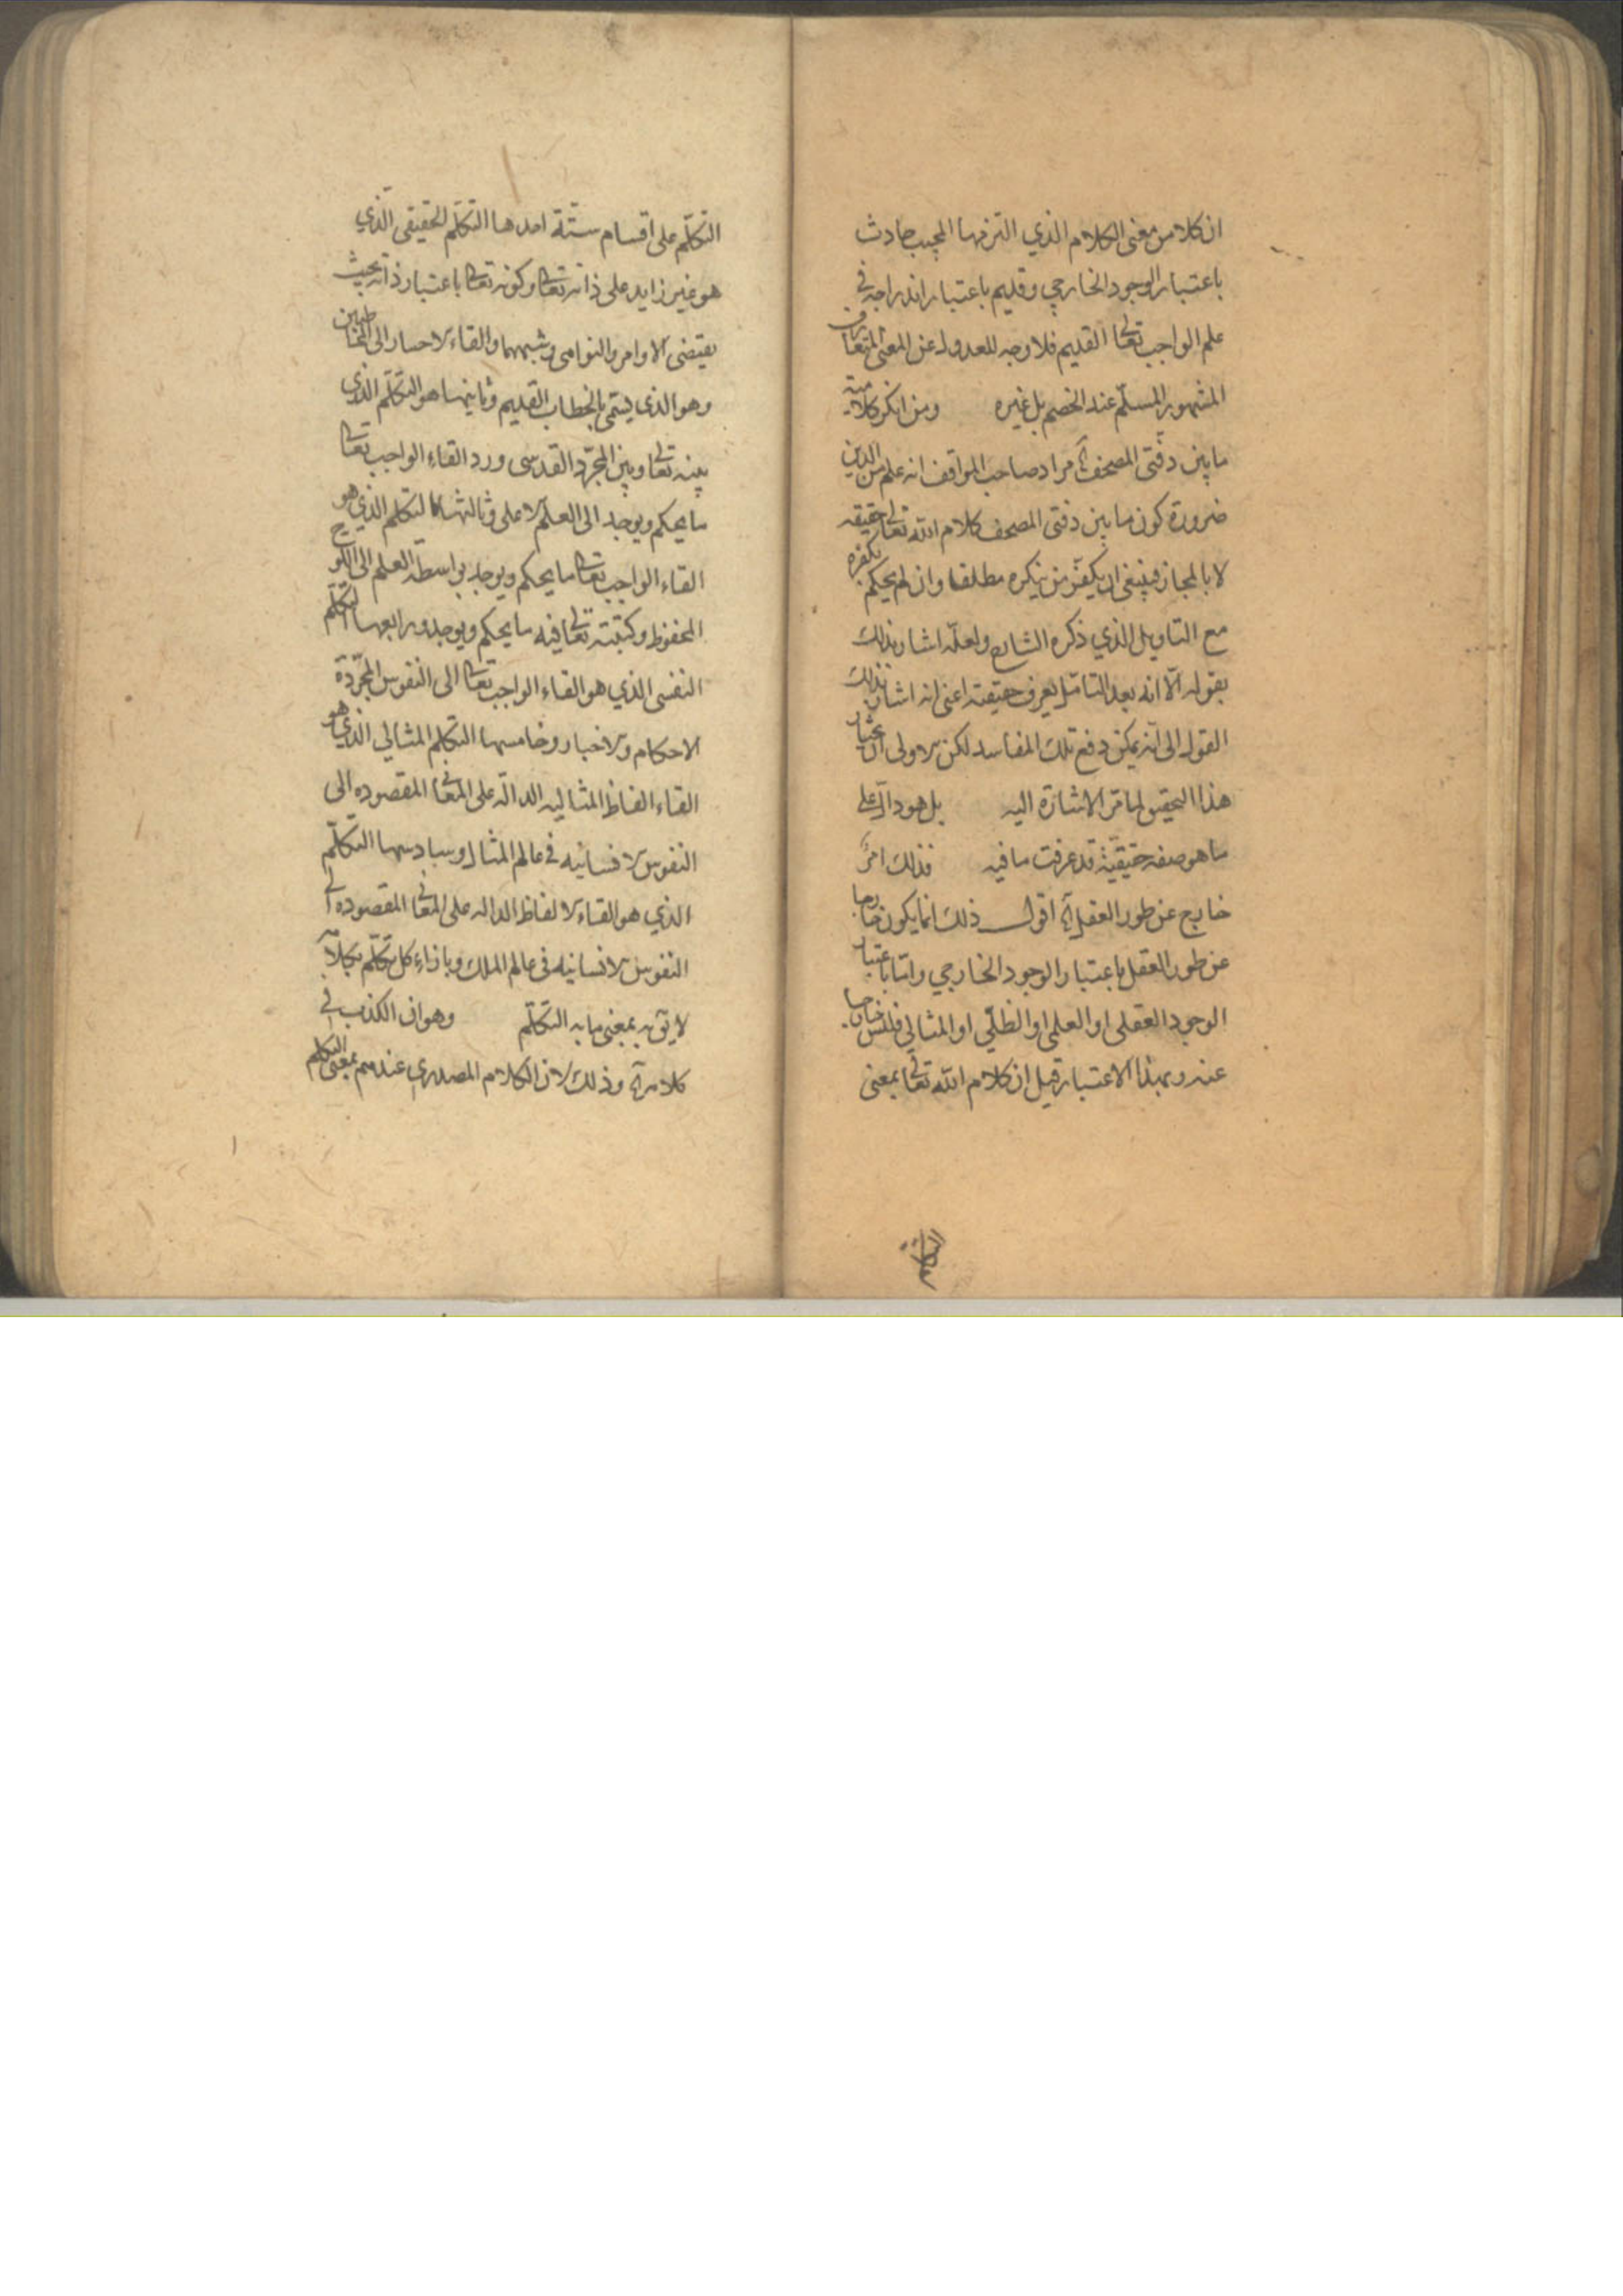 ان كلا من معنى الكلام الذي التزمها المجيب حادث
باعتبار الوجود الخارجي وقديم باعتبار اندراجه في
علم الواجب تعالى القديم فلا وجه للعدول عن المعنى المتعارف
المشهور المسلّم عند الخصم بل غيره ومن انكر كلامية
ما بين دفتي المصحف آه مراد صاحب المواقف انه علم من الدين
ضرورة كون ما بين دفتي المصحف كلام الله تعالى حقيقه
لا بالمجاز فينبغي ان يكفّر من ينكره مطلقا وان لم يحكم بكفره
مع التاويل الذي ذكره الشارح ولعلّه اشار بذلك
بقوله الّا انه بعد التامّل يعرف حقيقته اعنى انه اشار بذلك
القول الى انه يمكن دفع تلك المفاسد لكن الاولى
هذا التحقيق لما مرّ الاشارة اليه بل هو دالّ على
ما هو صفه حقيقيّة قد عرفت ما فيه فذلك امرٌ
خارج عن طور العقل آه اقول ذلك انما يكون خارجا
عن طور العقل باعتبار الوجود الخارجي وامّا باعتبار
الوجود العقلى او العلمى او الظلّي او المثالي فليس خارجا
عنه وبهذا الاعتبار قيل ان كلام الله تعالى بمعنى
التكلّم على اقسام ستّة احدها التكلّم الحقيقى الذي
هو غير زايد على ذاته تعالى وكونه تعالى باعتبار ذاته بحيث
يقتضى الاوامر والنواهى وشبههما والقاء الاخبار الى المخاطبين
وهو الذى يسمّى بالخطاب القديم وثانيها هو التكلّم الذي
بينه تعالى وبين المجرّد القدسى ورد القاء الواجب تعالى
ما يحكم ويوجد الى العلم الاعلى وثالثها التكلم الذي هو
القاء الواجب تعالى ما يحكم ويوجد بواسطة العلم الى اللوح
المحفوظ وكتبته تعالى فيه ما يحكم ويوجد ورابعها التكلّم
النفسى الذي هو القاء الواجب تعالى الى النفوس المجرّدة
الاحكام والاخبار وخامسها التكلم المثالي الذي هو
القاء الفاظ المثاليه الدالّه على المعانى المقصوده الى
النفوس الانسانيه في عالم المثال وسادسها التكلّم
الذي هو القاء الالفاظ الداله على المعانى المقصوده الى
النفوس الانسانيه فى عالم الملك وبازاء كل تكلّم كلام
لايق به بمعنى ما به التكلّم وهو ان الكذب في
كلامه آه وذلك لان الكلام المصدري عندهم بمعنى التكلم